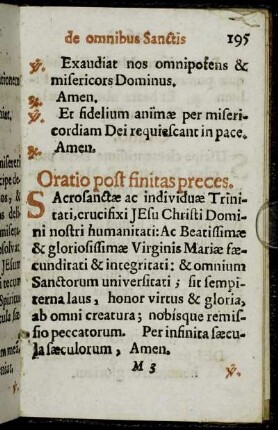 de omnibus Sanctis 195
℣. Exaudiat nos omnipotens &
misericors Dominus.
℟. Amen.
℣. Et fidelium animæ per miseri-
cordiam Dei requiescant in pace.
℟. Amen.
Oratio post finitas preces.
SAcrosanctæ ac individuæ Trini-
tati, crucifixi JEsu Christi Domi-
ni nostri humanitati: Ac Beatissimæ
& gloriosissimæ Virginis Mariæ fæ-
cunditati & integritati: & omnium
Sanctorum universitati; sit sempi-
terna laus, honor virtus & gloria,
ab omni creatura; nobisque remis-
sio peccatorum. Per infinita sæcu-
la sæculorum, Amen.
M 3 ℣.